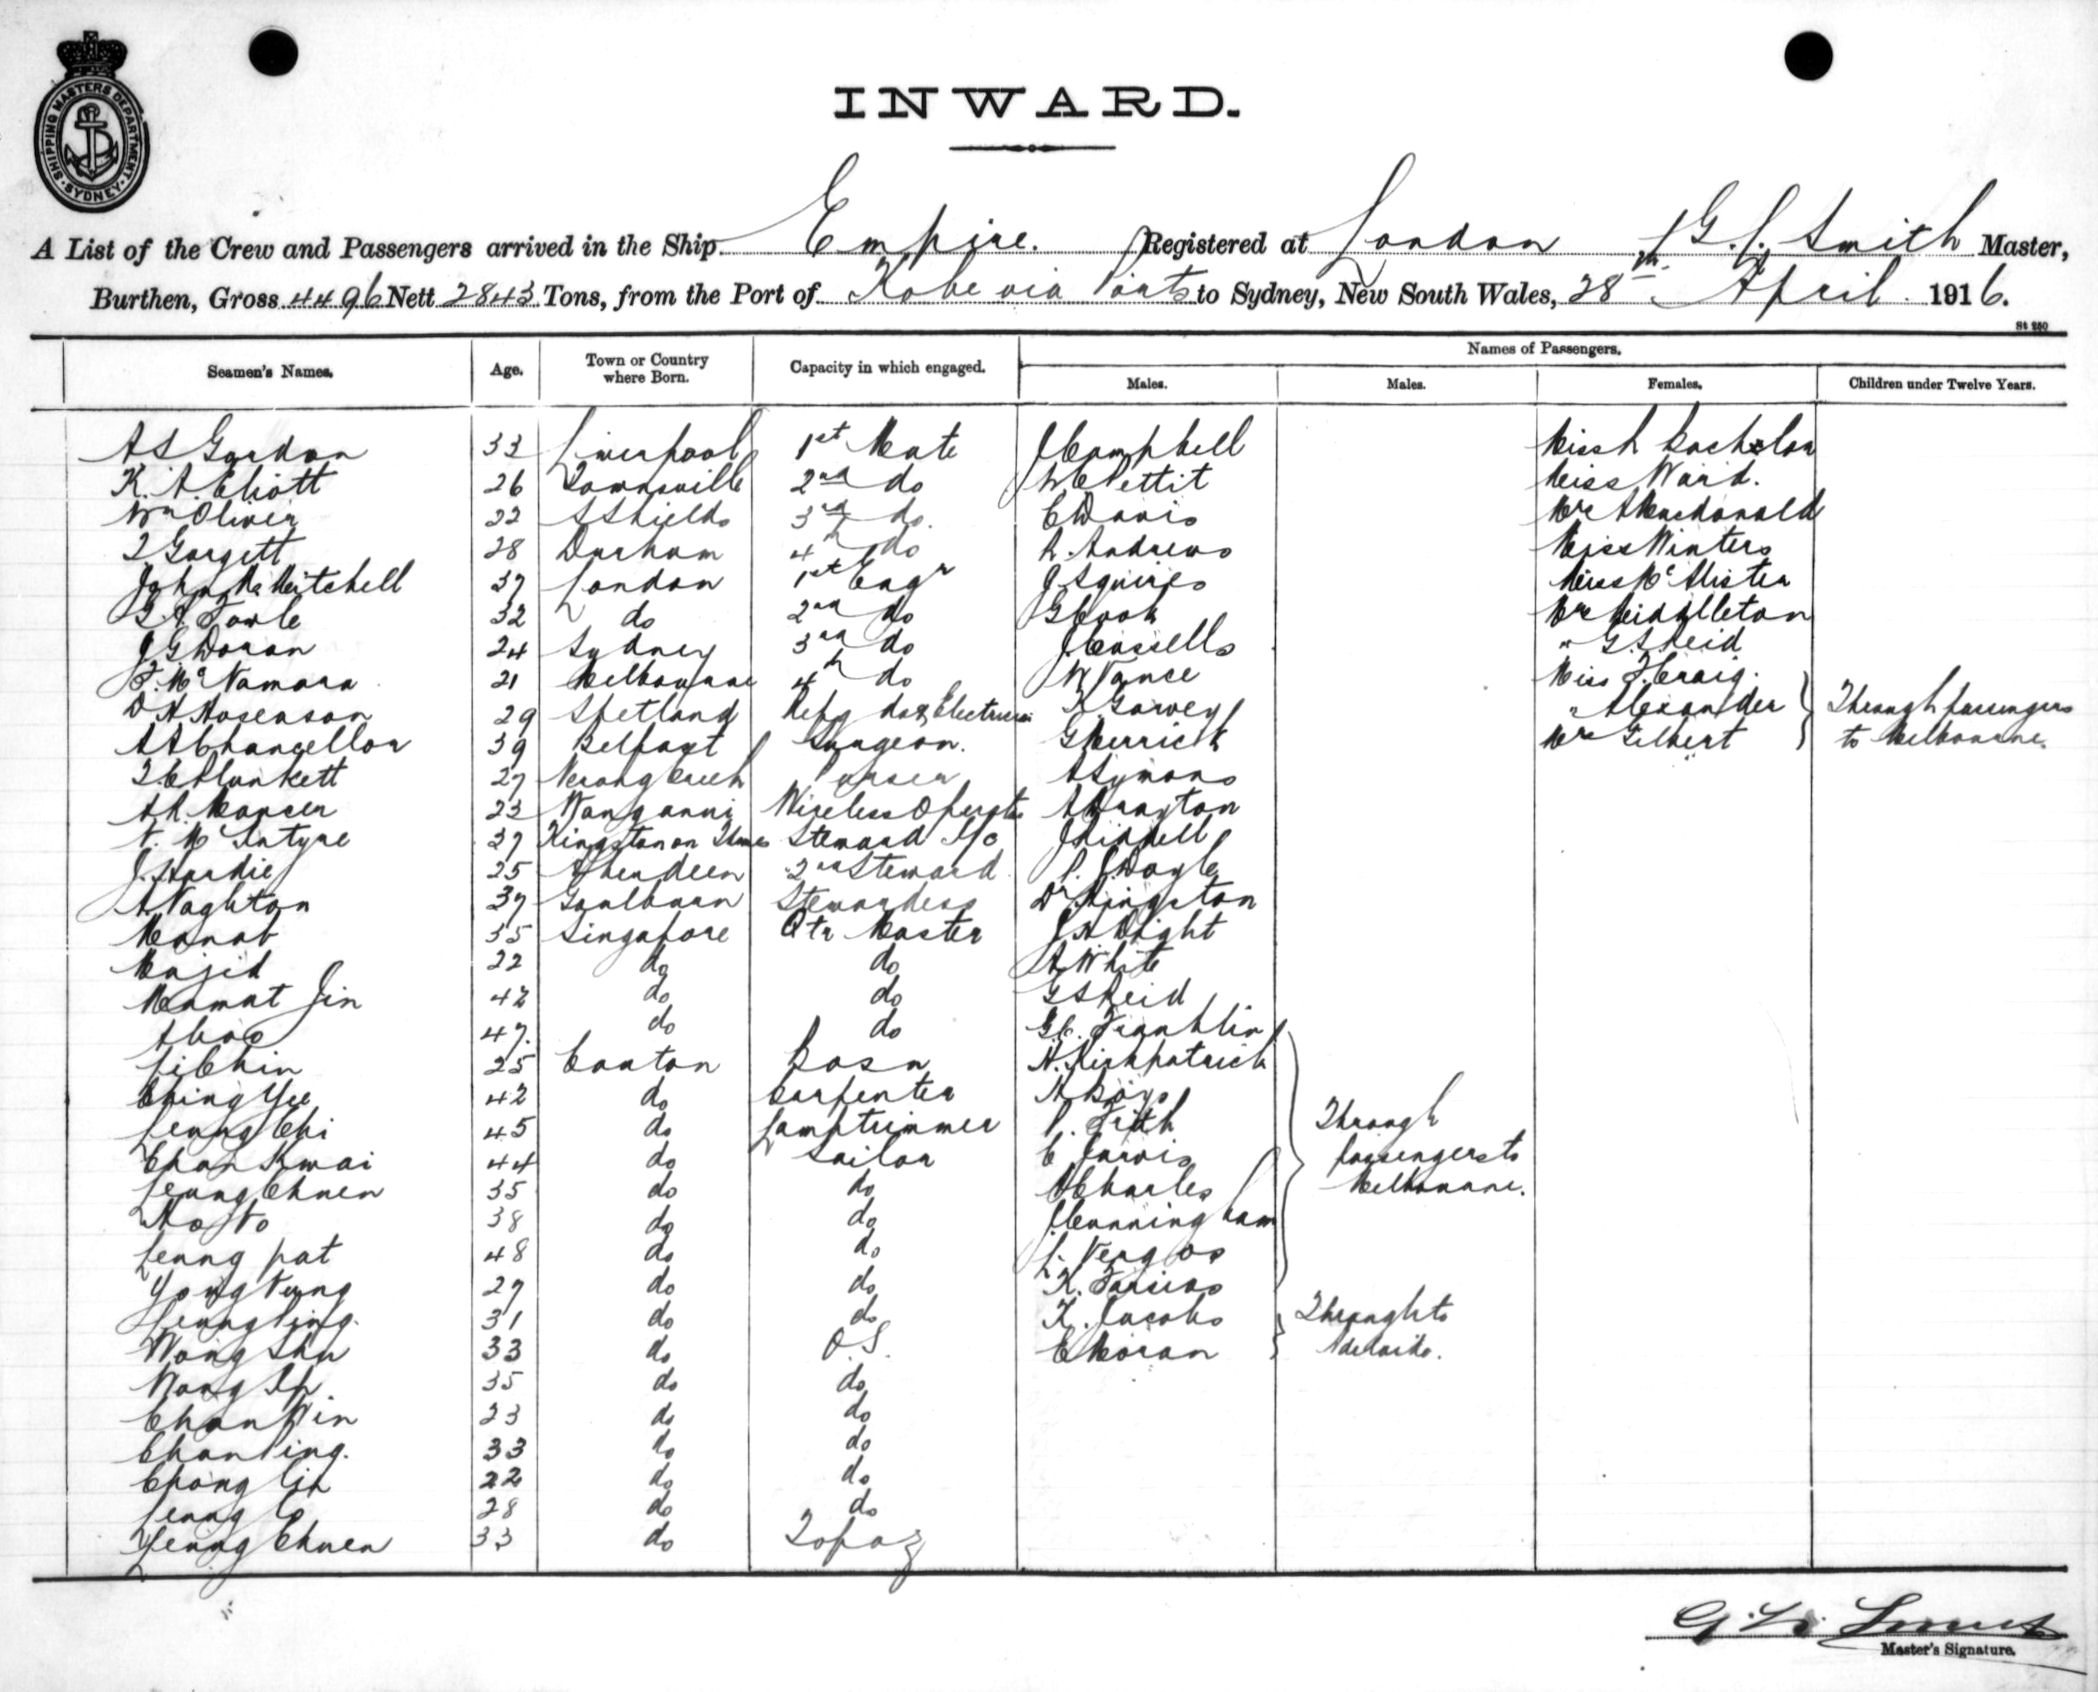 SHIPPING MASTERS DEPARTMENT. SYDNEY.
INWARD.
A List of the Crew and Passengers arrived in the Ship Empire. Registered at London G. Smith Master,
Burthen, Gross 4496 Nett 2843 Tons, from the Port of Kobe via Ports to Sydney, New South Wales, 28th April 1916.
St 250
Seamen's Names. Age. Town or Country where Born. Capacity in which engaged. Names of Passengers.
Males. Males. Females. Children under Twelve Years.
A S Gordon 33 Liverpool 1st Mate J Campbell Miss
K. A. Eliott 26 Townsville 2nd do Pettit Miss Ward.
Wm Oliver 22 S Shields 3rd do. C Davis Macdonald
T Gargett 28 Durham 4th do Andrews Miss Winters
John Mitchell 37 London 1st Engr J Squires Miss McAlister
G A Fowle 32 do 2nd do G Cook Middleton
J G Doran 24 Sydney 3rd do J. Cassells " G. S. Reid
F. McNamara 21 Melbourne 4th do W Vance Miss Craig.
29 Shetland Refg do & Electrician Garvey " Alexander Through passengers
A A Chancellor 39 Belfast Surgeon. G Merrick Gilbert to Melbourne.
T C Plunkett 27 Creek Purser A Symons
A R. Mercer 23 Wanganui Wireless Operator Drayton
McIntyre 37 Kingston on Thames Steward J Liddell
J. Hardie 25 Aberdeen 2nd Steward P. J Doyle
A Naghton 37 Goulburn Stewardess Dr Kingston
Manab 35 Singapore Qtr Master Dight
Majid 22 do do A White
Mamat Jin 42 do do G S Reid
Abas 47. do do G C. Franklin
Li Chin 25 Canton Bosn H. Kirkpatrick
Ching Yee 42 do Carpenter A Boys
Leung Chi 45 do Lamptrimmer P. Frith Through
Chan Kwai 44 do Sailor C Jarvis passengers to
Leung Chuen 35 do do A Charles Melbourne.
Ho To 38 do do J Cunningham
Leung pat 48 do do L. Vergos
Yong Yung 27 do do K.
Leung Ping. 31 do do K. Jacobs Through to
Wong Shu 33 do O.S. E Moran Adelaide.
Wong Ip. 35 do do
Chan Win 23 do do
Chan Ping. 33 do do
Chong 22 do do
Leung 28 do do
Leung Chuen 33 do Topaz
Master's Signature.